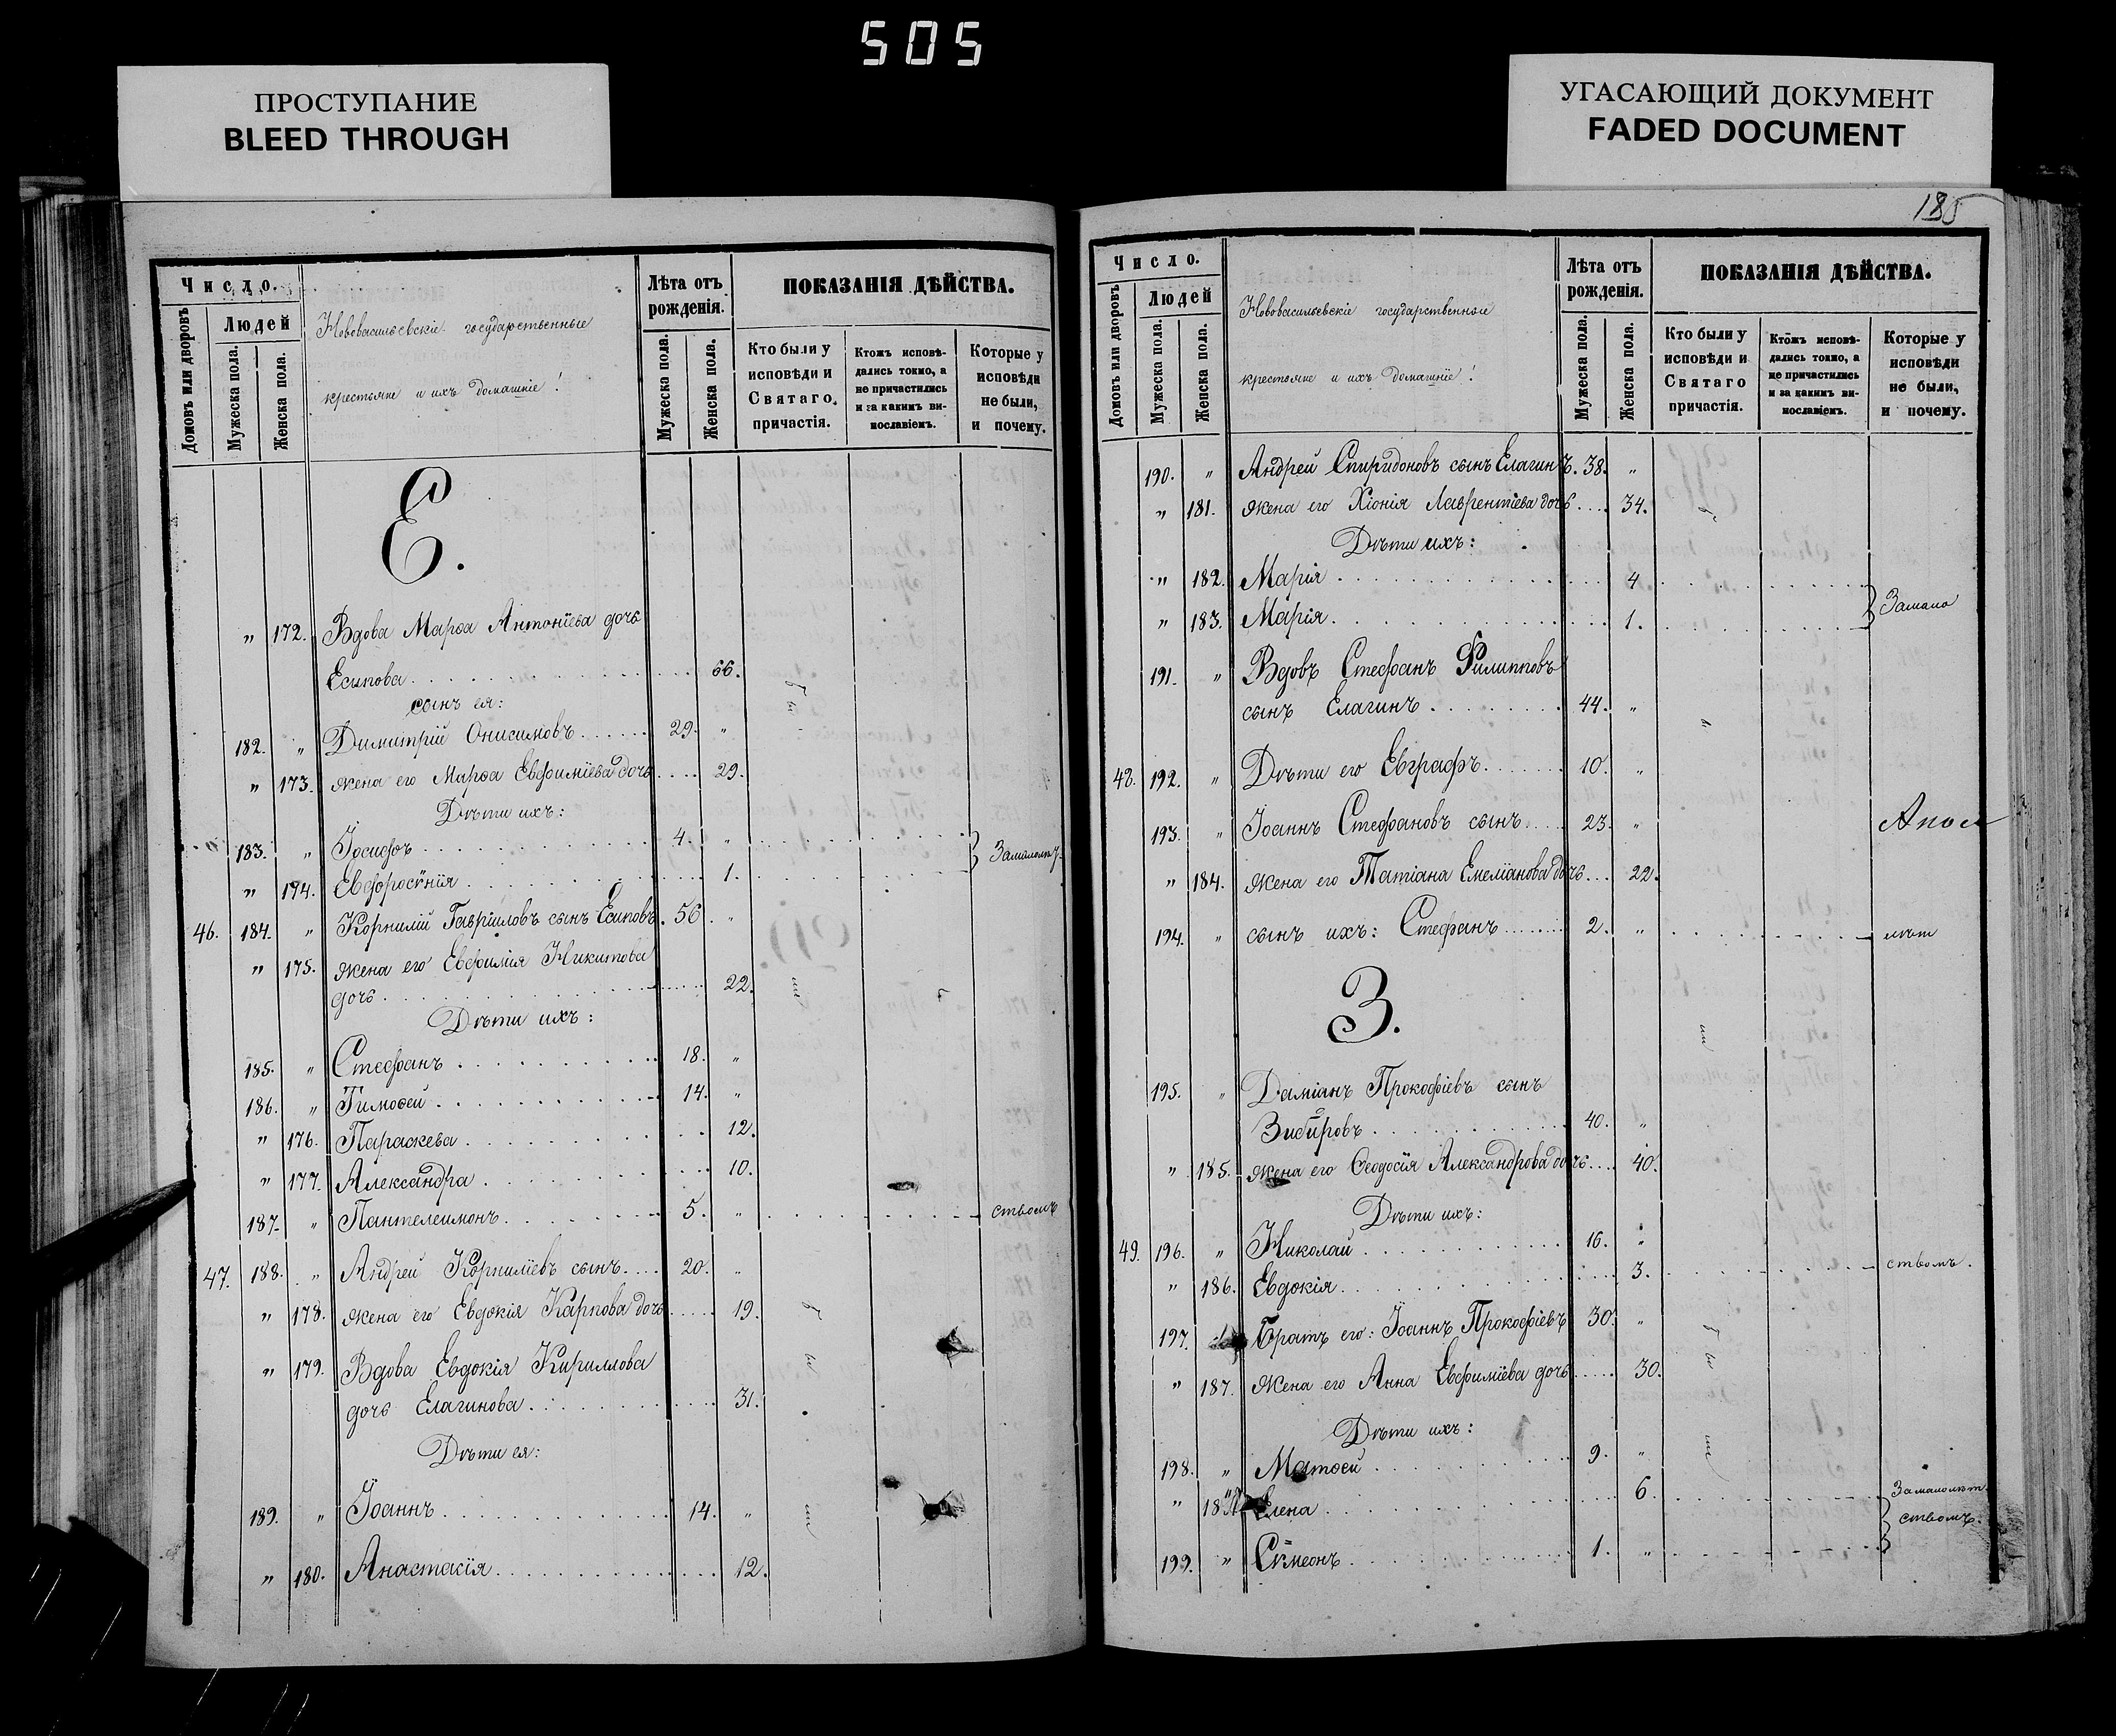 505
ПРОСТУПАНИЕ
BLEED THROUGH
УГАСАЮЩИЙ ДОКУМЕНТ
FADED DOCUMENT
Число.
Домовъ или дворовъ
Людей
Мужеска пола.
Женска пола.
Нововасильевскіе государственные
крестьяне и ихъ домашніе!
Лѣта отъ рожденія.
Мужеска пола.
Женска пола.
ПОКАЗАНІЯ ДѢЙСТВА.
Кто были у исповѣди и Святаго причастія.
Ктожъ исповѣдались токмо, а не причастились и за какимъ винословіемъ.
Которые у исповѣди не были, и почему.
Е.
„ 172. Вдова Марѳа Антоніева дочь
Есипова 66.
сынъ ея:
182. „ Димитрій Онисимовъ 29. „
„ 173. жена его Марѳа Евфиміева дочь 29.
Дѣти ихъ:
183. „ Іосифъ 4. „
„ 174. Евфросѵнія 1. Замалолѣт
46. 184. „ Корнилій Гавріиловъ сынъ Есиповъ 56. „
„ 175. жена его Евфимія Никитова
дочь 22.
Дѣти ихъ:
185. „ Стефанъ 18. „
186. „ Тимоѳей 14. „
„ 176. Параскева 12.
„ 177. Александра 10.
187. „ Пантелеимонъ 5. „ ствомъ
47. 188. „ Андрей Корниліевъ сынъ 20. „
„ 178. жена его Евдокія Карпова дочь 19.
„ 179. Вдова Евдокія Кириллова
дочь Елагинова 31.
Дѣти ея:
189. „ Іоаннъ 14. „
„ 180. Анастасія 12.
185
Число.
Домовъ или дворовъ
Людей
Мужеска пола.
Женска пола.
Нововасильевскіе государственные
крестьяне и ихъ домашніе!
Лѣта отъ рожденія.
Мужеска пола.
Женска пола.
ПОКАЗАНІЯ ДѢЙСТВА.
Кто были у исповѣди и Святаго причастія.
Ктожъ исповѣдались токмо, а не причастились и за какимъ винословіемъ.
Которые у исповѣди не были, и почему.
190. „ Андрей Спиридоновъ сынъ Елагинъ. 38. „
„ 181. жена его Хіонія Лаврентіева дочь 34.
Дѣти ихъ:
„ 182. Марія 4
„ 183. Марія 1. Замало
191. „ Вдовъ Стефанъ Филипповъ
сынъ Елагинъ 44. „
48. 192. „ Дѣти его Евграфъ 10. „
193. „ Іоаннъ Стефановъ сынъ 23. „
„ 184. жена его Татіана Емеліанова дочь 22.
194. „ сынъ ихъ: Стефанъ 2. „ лѣт
З.
195. „ Даміанъ Прокофіевъ сынъ
Зибировъ 40. „
„ 185. жена его Ѳеодосія Александрова дочь 40.
Дѣти ихъ:
49. 196. „ Николай 16. „
„ 186. Евдокія 3. ствомъ.
197. Братъ его: Іоаннъ Прокофіевъ 30. „
„ 187. Жена его Анна Евфиміева дочь 30.
Дѣти ихъ:
198. „ Матѳей 9. „
„ Елена 6. Замалолѣт
ствомъ.
199. „ Сѵмеонъ 1. „